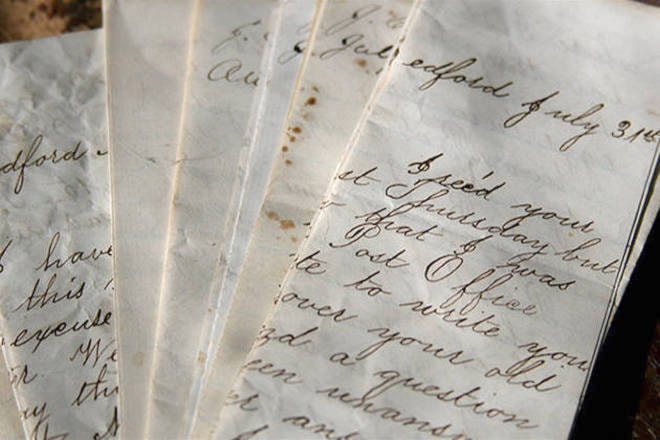 dford
I have
this
excuse
r. We
y thi
J.
Au
J.
July
edford July 31st
I rec'd your
st Thursday but
that I was
Post Office
te to write you
over your old
nd a question
een unansw
er an